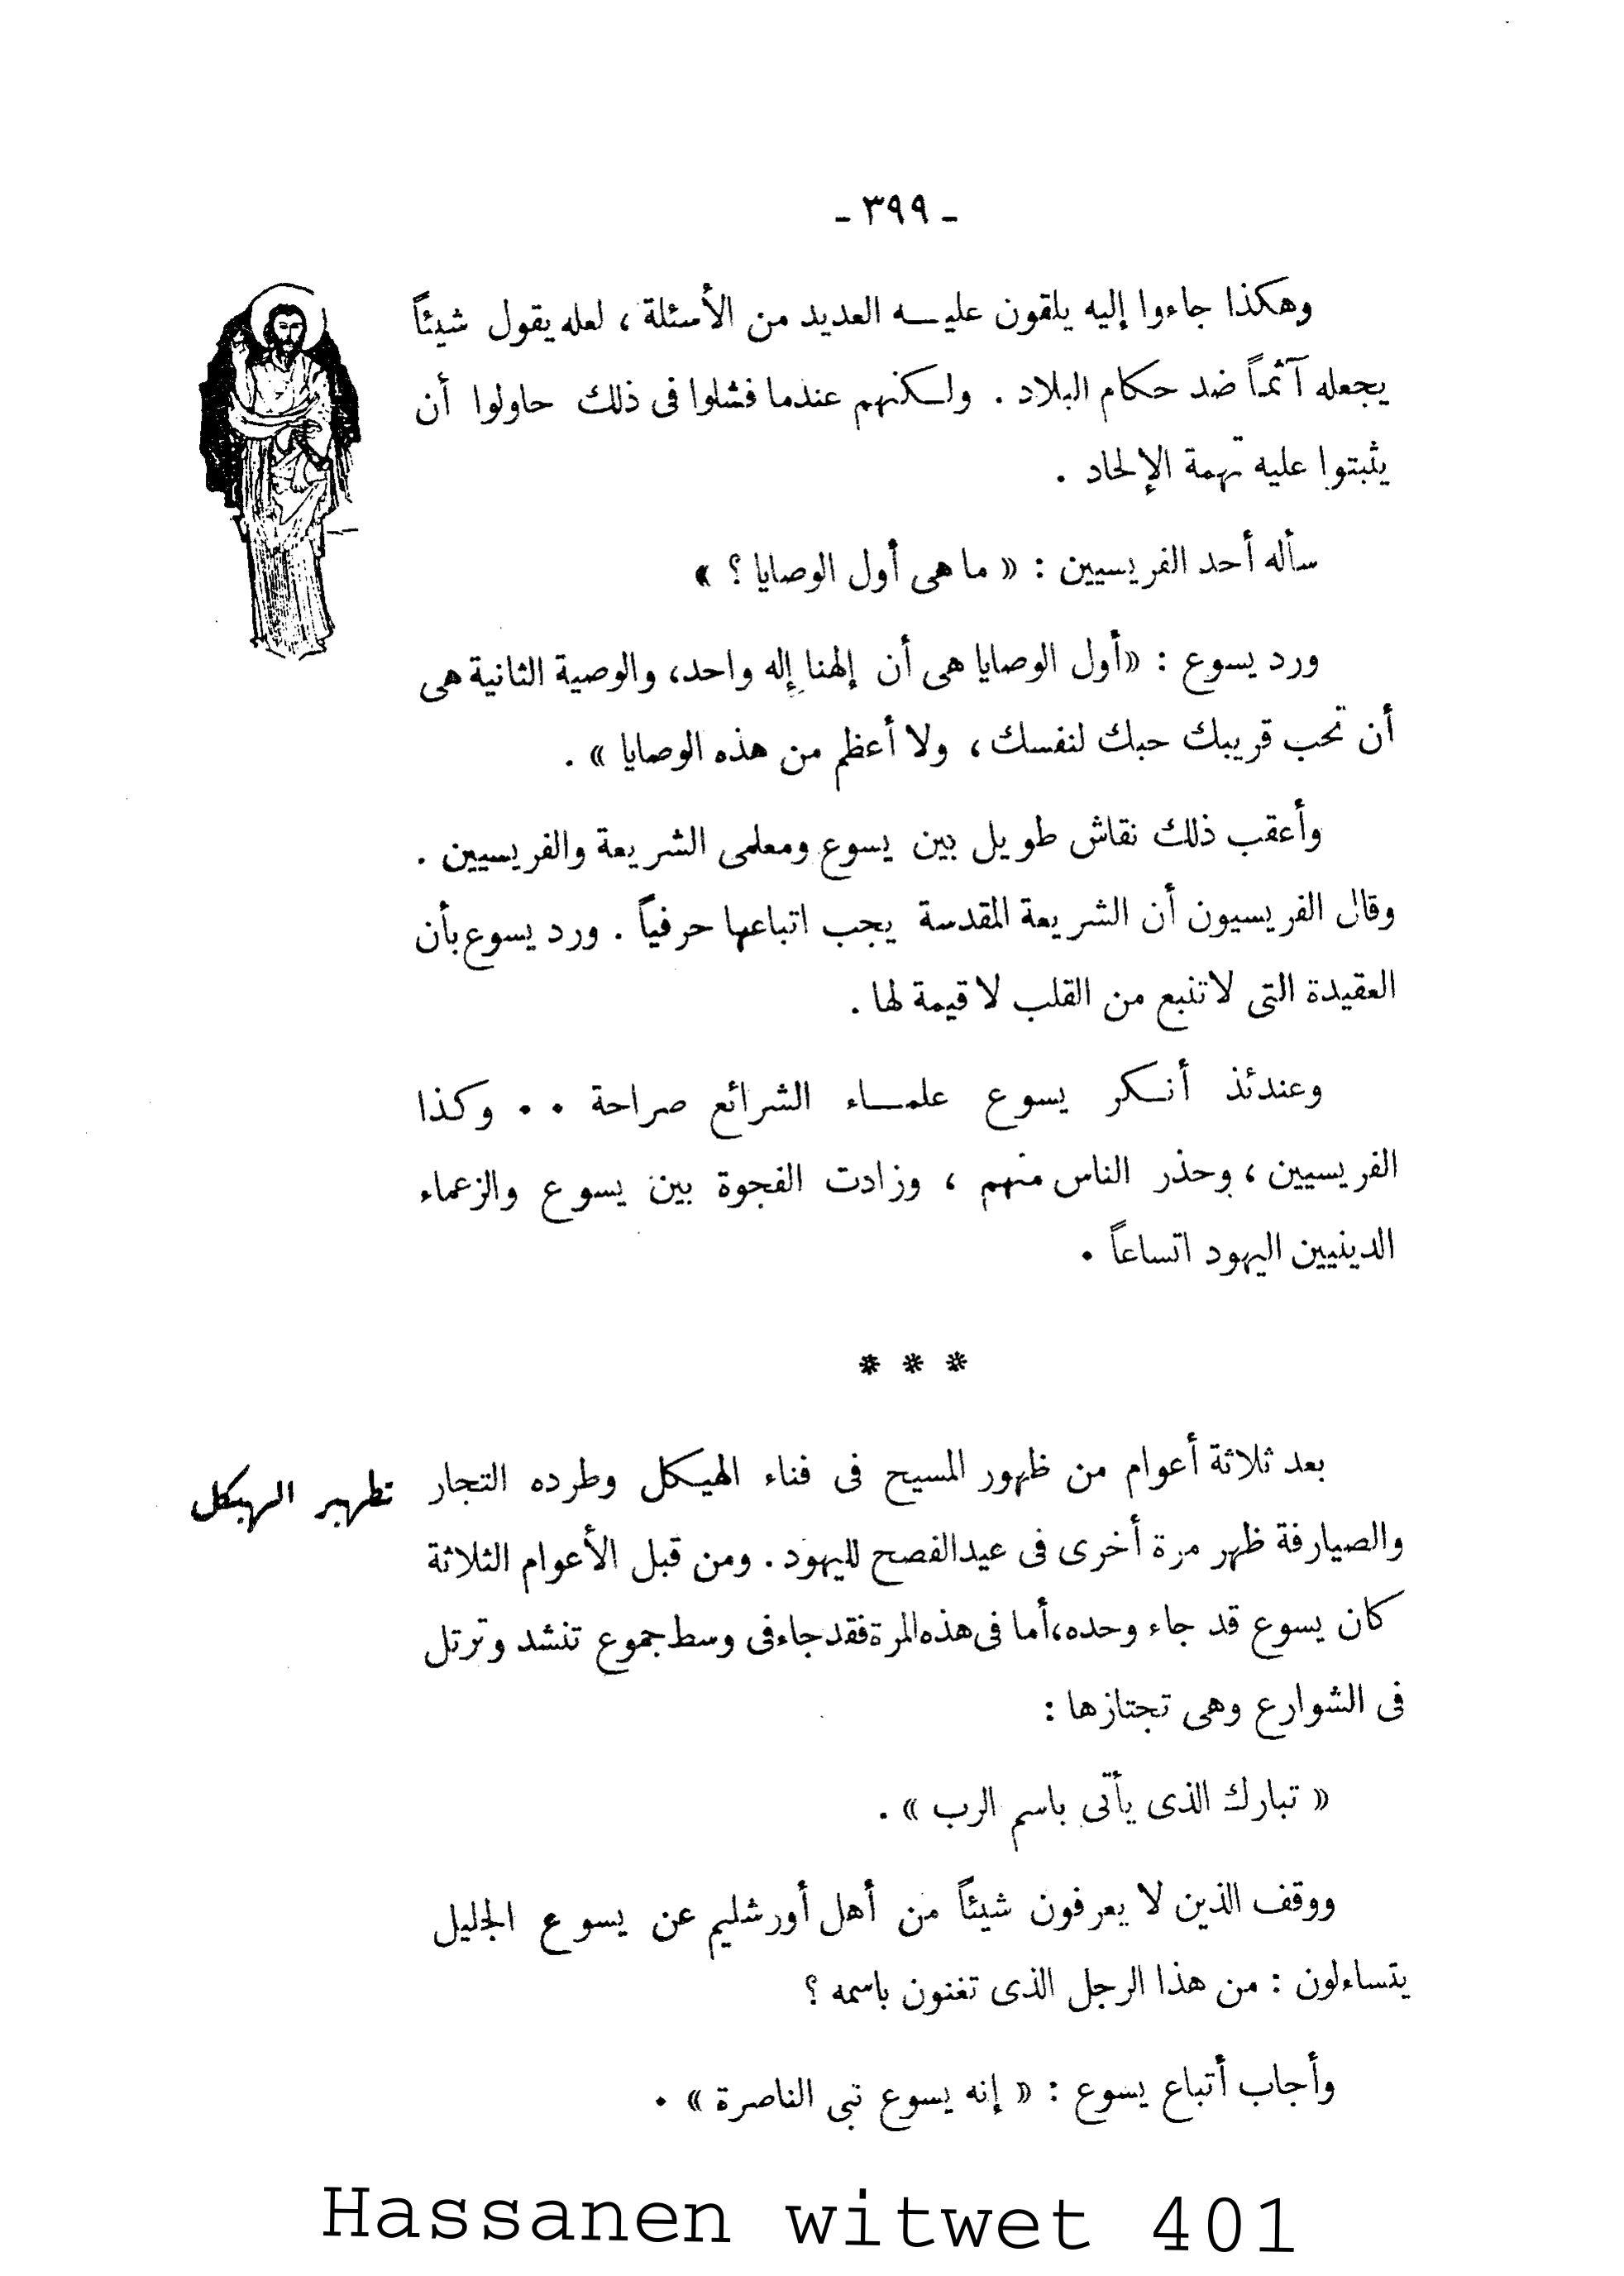 - ٣٩٩ -
وهكذا جاءوا إليه يلقون عليه العديد من الأسئلة ، لعله يقول شيئاً
يجعله آثماً ضد حكام البلاد . ولكنهم عندما فشلوا فى ذلك حاولوا أن
يثبتوا عليه تهمة الإلحاد .
سأله أحد الفريسيين : « ما هى أول الوصايا ؟ »
ورد يسوع : «أول الوصايا هى أن إلهنا إله واحد، والوصية الثانية هى
أن تحب قريبك حبك لنفسك ، ولا أعظم من هذه الوصايا » .
وأعقب ذلك نقاش طويل بين يسوع ومعلمى الشريعة والفريسيين .
وقال الفريسيون أن الشريعة المقدسة يجب اتباعها حرفياً . ورد يسوع بأن
العقيدة التى لا تنبع من القلب لا قيمة لها .
وعندئذ أنكر يسوع علماء الشرائع صراحة . . وكذا
الفريسيين ، وحذر الناس منهم ، وزادت الفجوة بين يسوع والزعماء
الدينيين اليهود اتساعاً .
* * *
تطهير الهيكل
بعد ثلاثة أعوام من ظهور المسيح فى فناء الهيكل وطرده التجار
والصيارفة ظهر مرة أخرى فى عيد الفصح لليهود . ومن قبل الأعوام الثلاثة
كان يسوع قد جاء وحده، أما فى هذه المرة فقد جاء فى وسط جموع تنشد وترتل
فى الشوارع وهى تجتازها :
« تبارك الذى يأتى باسم الرب » .
ووقف الذين لا يعرفون شيئاً من أهل أورشليم عن يسوع الجليل
يتساءلون : من هذا الرجل الذى تغنون باسمه ؟
وأجاب أتباع يسوع : « إنه يسوع نبى الناصرة » .
Hassanen witwet 401